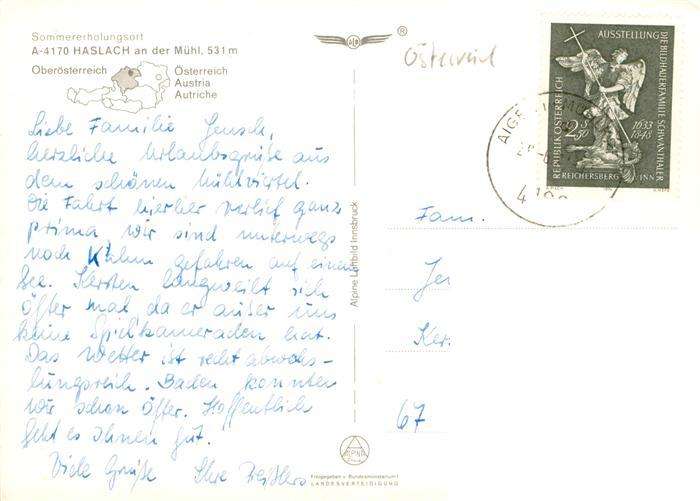 Sommererholungsort
A-4170 HASLACH an der Mühl, 531 m
Oberösterreich
Österreich
Austria
Autriche
ALD
®
Österreich
Liebe Familie Jensch,
herzliche Urlaubsgrüße aus
dem schönen Mühlviertel.
Die Fahrt hierher verlief ganz
prima wir sind unterwegs
noch Kahn gefahren auf einem
See. Kersten langweilt sich
öfter mal da er außer uns
keine Spielkameraden hat.
Das Wetter ist recht abwechs-
lungsreich. Baden konnten
wir schon öfter. Hoffentlich
geht es Ihnen gut.
Viele Grüße Ihre
Alpine Luftbild Innsbruck
ALPINE
Freigegeben v. Bundesministerium f.
LANDESVERTEIDIGUNG
AUSSTELLUNG
DIE BILDHAUERFAMILIE SCHWANTHALER
REPUBLIK ÖSTERREICH
S 2.50
1633
1848
REICHERSBERG INN
AIGEN
Fam.
Jen
Ker.
67